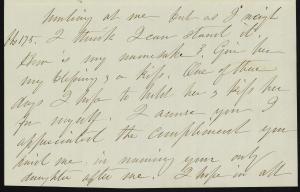 hurling at me but as I weigh
lbs 175. I think I can stand it.
How is my namesake? Give her
my blessing & a kiss. One of these
days I hope to hold her & kiss her
for myself. I assure you I
appreciated the compliment you
paid me in naming your only
daughter after me. I hope in all